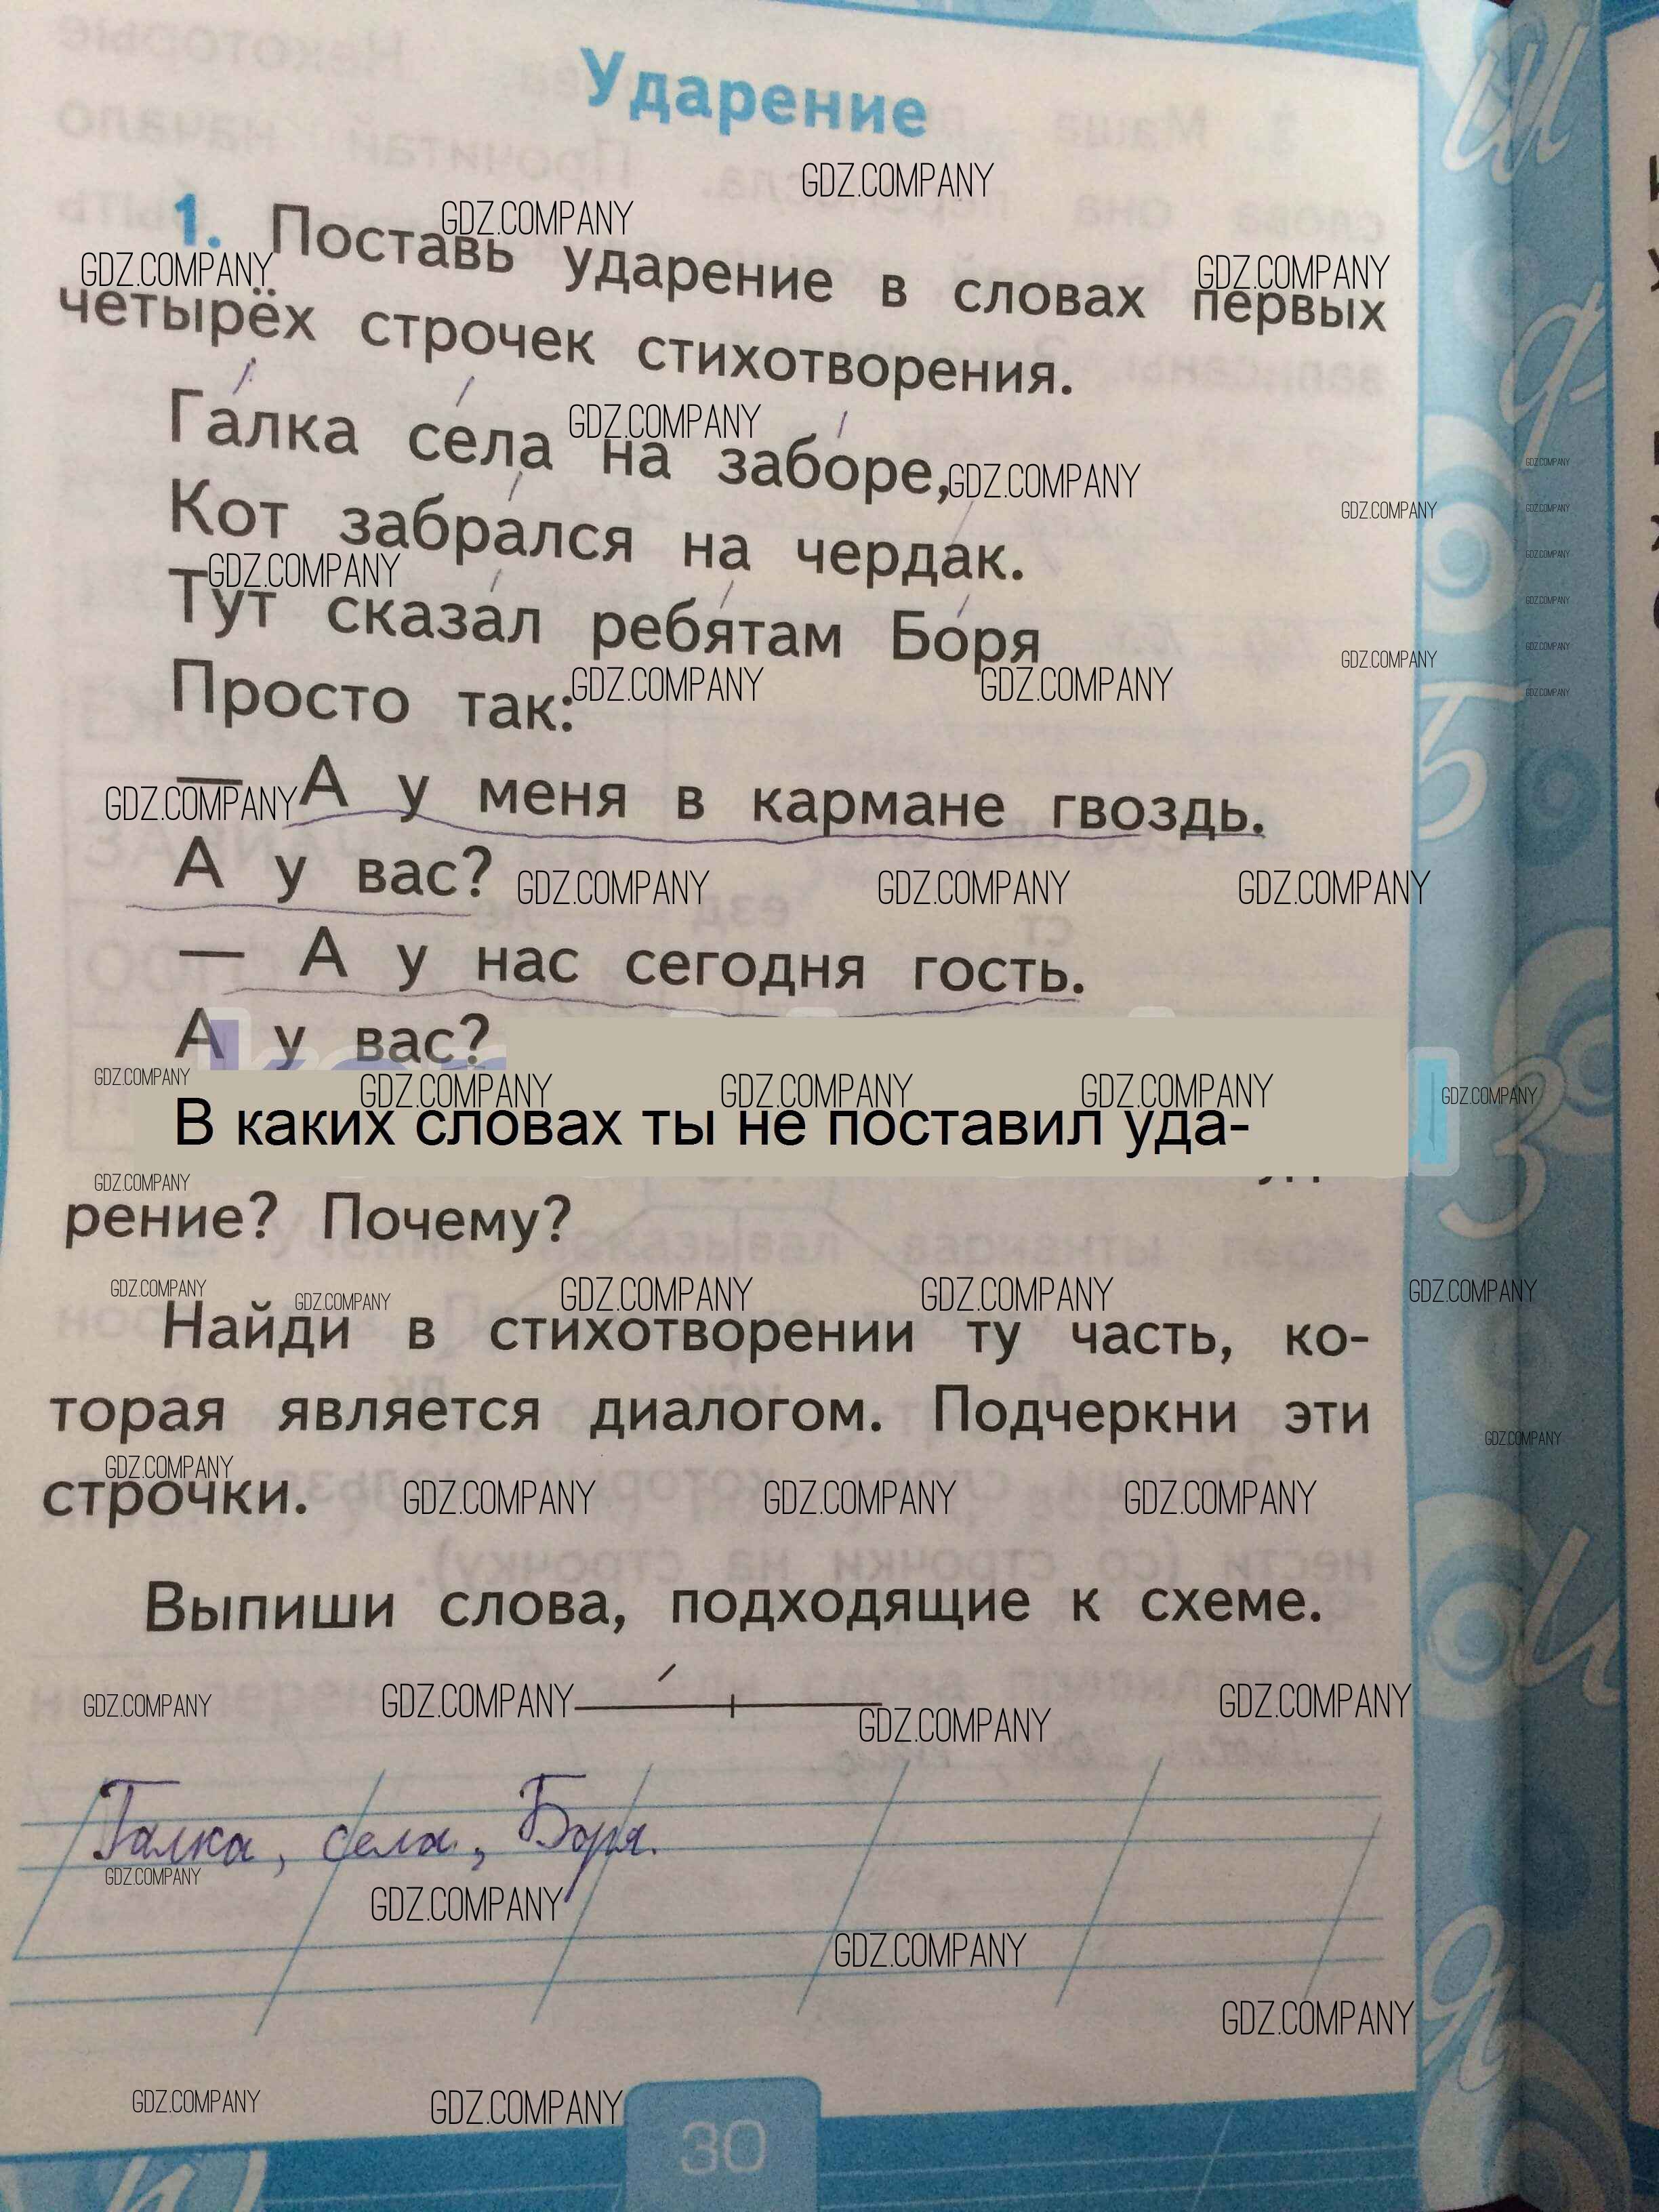 Ударение
GDZ.COMPANY
1. Поставь ударение в словах первых
четырёх строчек стихотворения.
Галка села на заборе,
Кот забрался на чердак.
Тут сказал ребятам Боря
Просто так:
— А у меня в кармане гвоздь.
А у вас?
— А у нас сегодня гость.
А у вас?
В каких словах ты не поставил уда-
рение? Почему?
Найди в стихотворении ту часть, ко-
торая является диалогом. Подчеркни эти
строчки.
Выпиши слова, подходящие к схеме.
Галка, села, Боря.
30